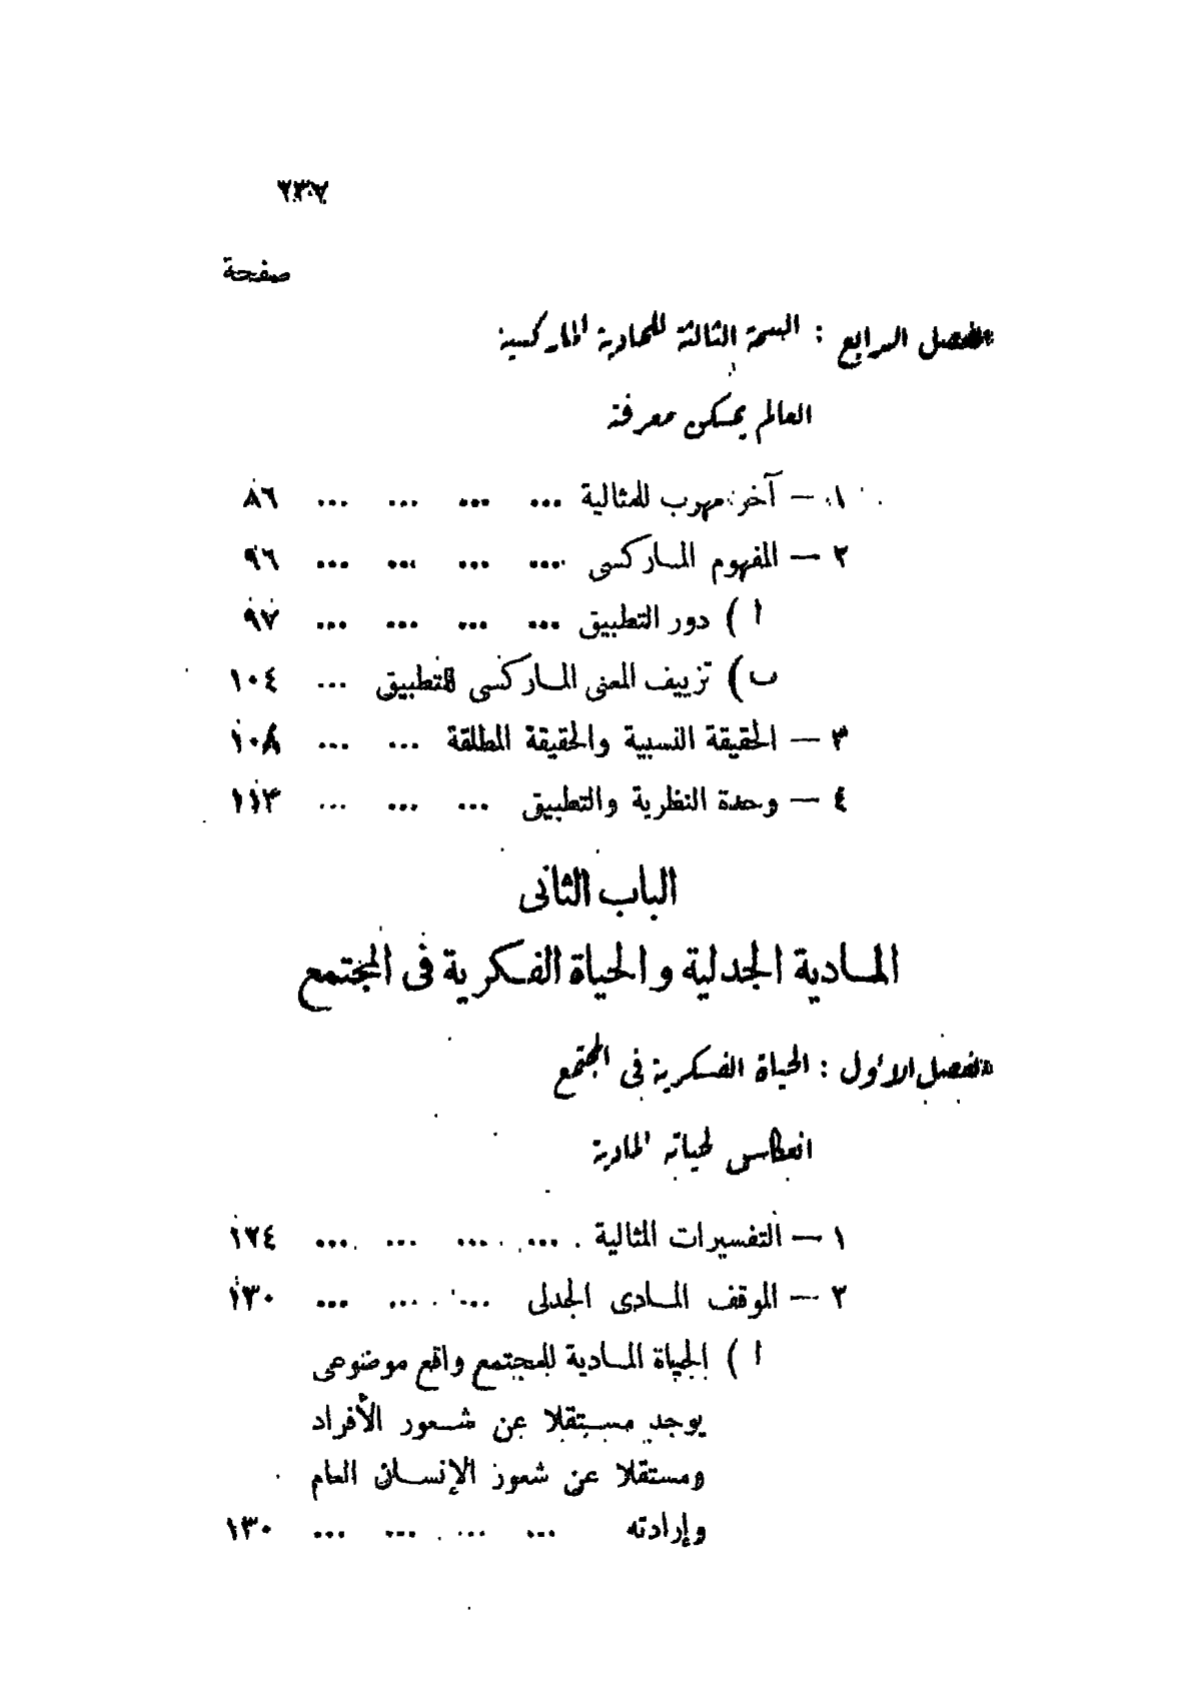 ٢٣٧
صفحة
الفصل الرابع : السمة الثالثة للمادية الماركسية
العالم يمكن معرفة
١ — آخر مهرب للمثالية ... ... ... ... ٨٦
٢ — المفهوم الماركسى ... ... ... ... ٩٦
ا ) دور التطبيق ... ... ... ... ٩٧
ب) تزييف المعنى الماركسى للتطبيق ... ١٠٤
٣ — الحقيقة النسبية والحقيقة المطلقة ... ... ١٠٨
٤ — وحدة النظرية والتطبيق ... ... ... ١١٣
الباب الثانى
المادية الجدلية والحياة الفكرية فى المجتمع
الفصل الأول : الحياة الفكرية فى المجتمع
انعكاس لحياته المادية
١ — التفسيرات المثالية ... ... ... ... ١٢٤
٢ — الموقف المادى الجدلى ... ... ... ١٣٠
ا ) الحياة المادية للمجتمع واقع موضوعى
يوجد مستقلا عن شعور الأفراد
ومستقلا عن شعور الإنسان العام
وإرادته ... ... ... ... ١٣٠